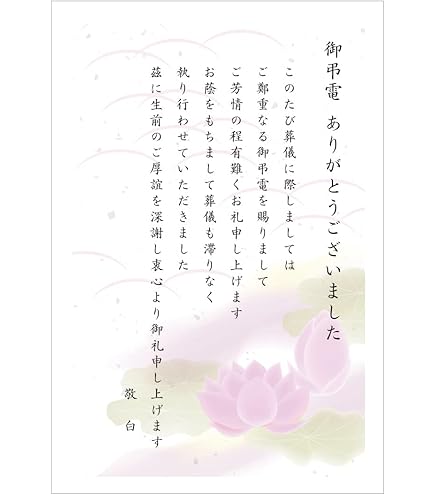 御弔電 ありがとうございました
このたび葬儀に際しましては
ご鄭重なる御弔電を賜りまして
ご芳情の程有難くお礼申し上げます
お蔭をもちまして葬儀も滞りなく
執り行わせていただきました
茲に生前のご厚誼を深謝し衷心より御礼申し上げます
敬白